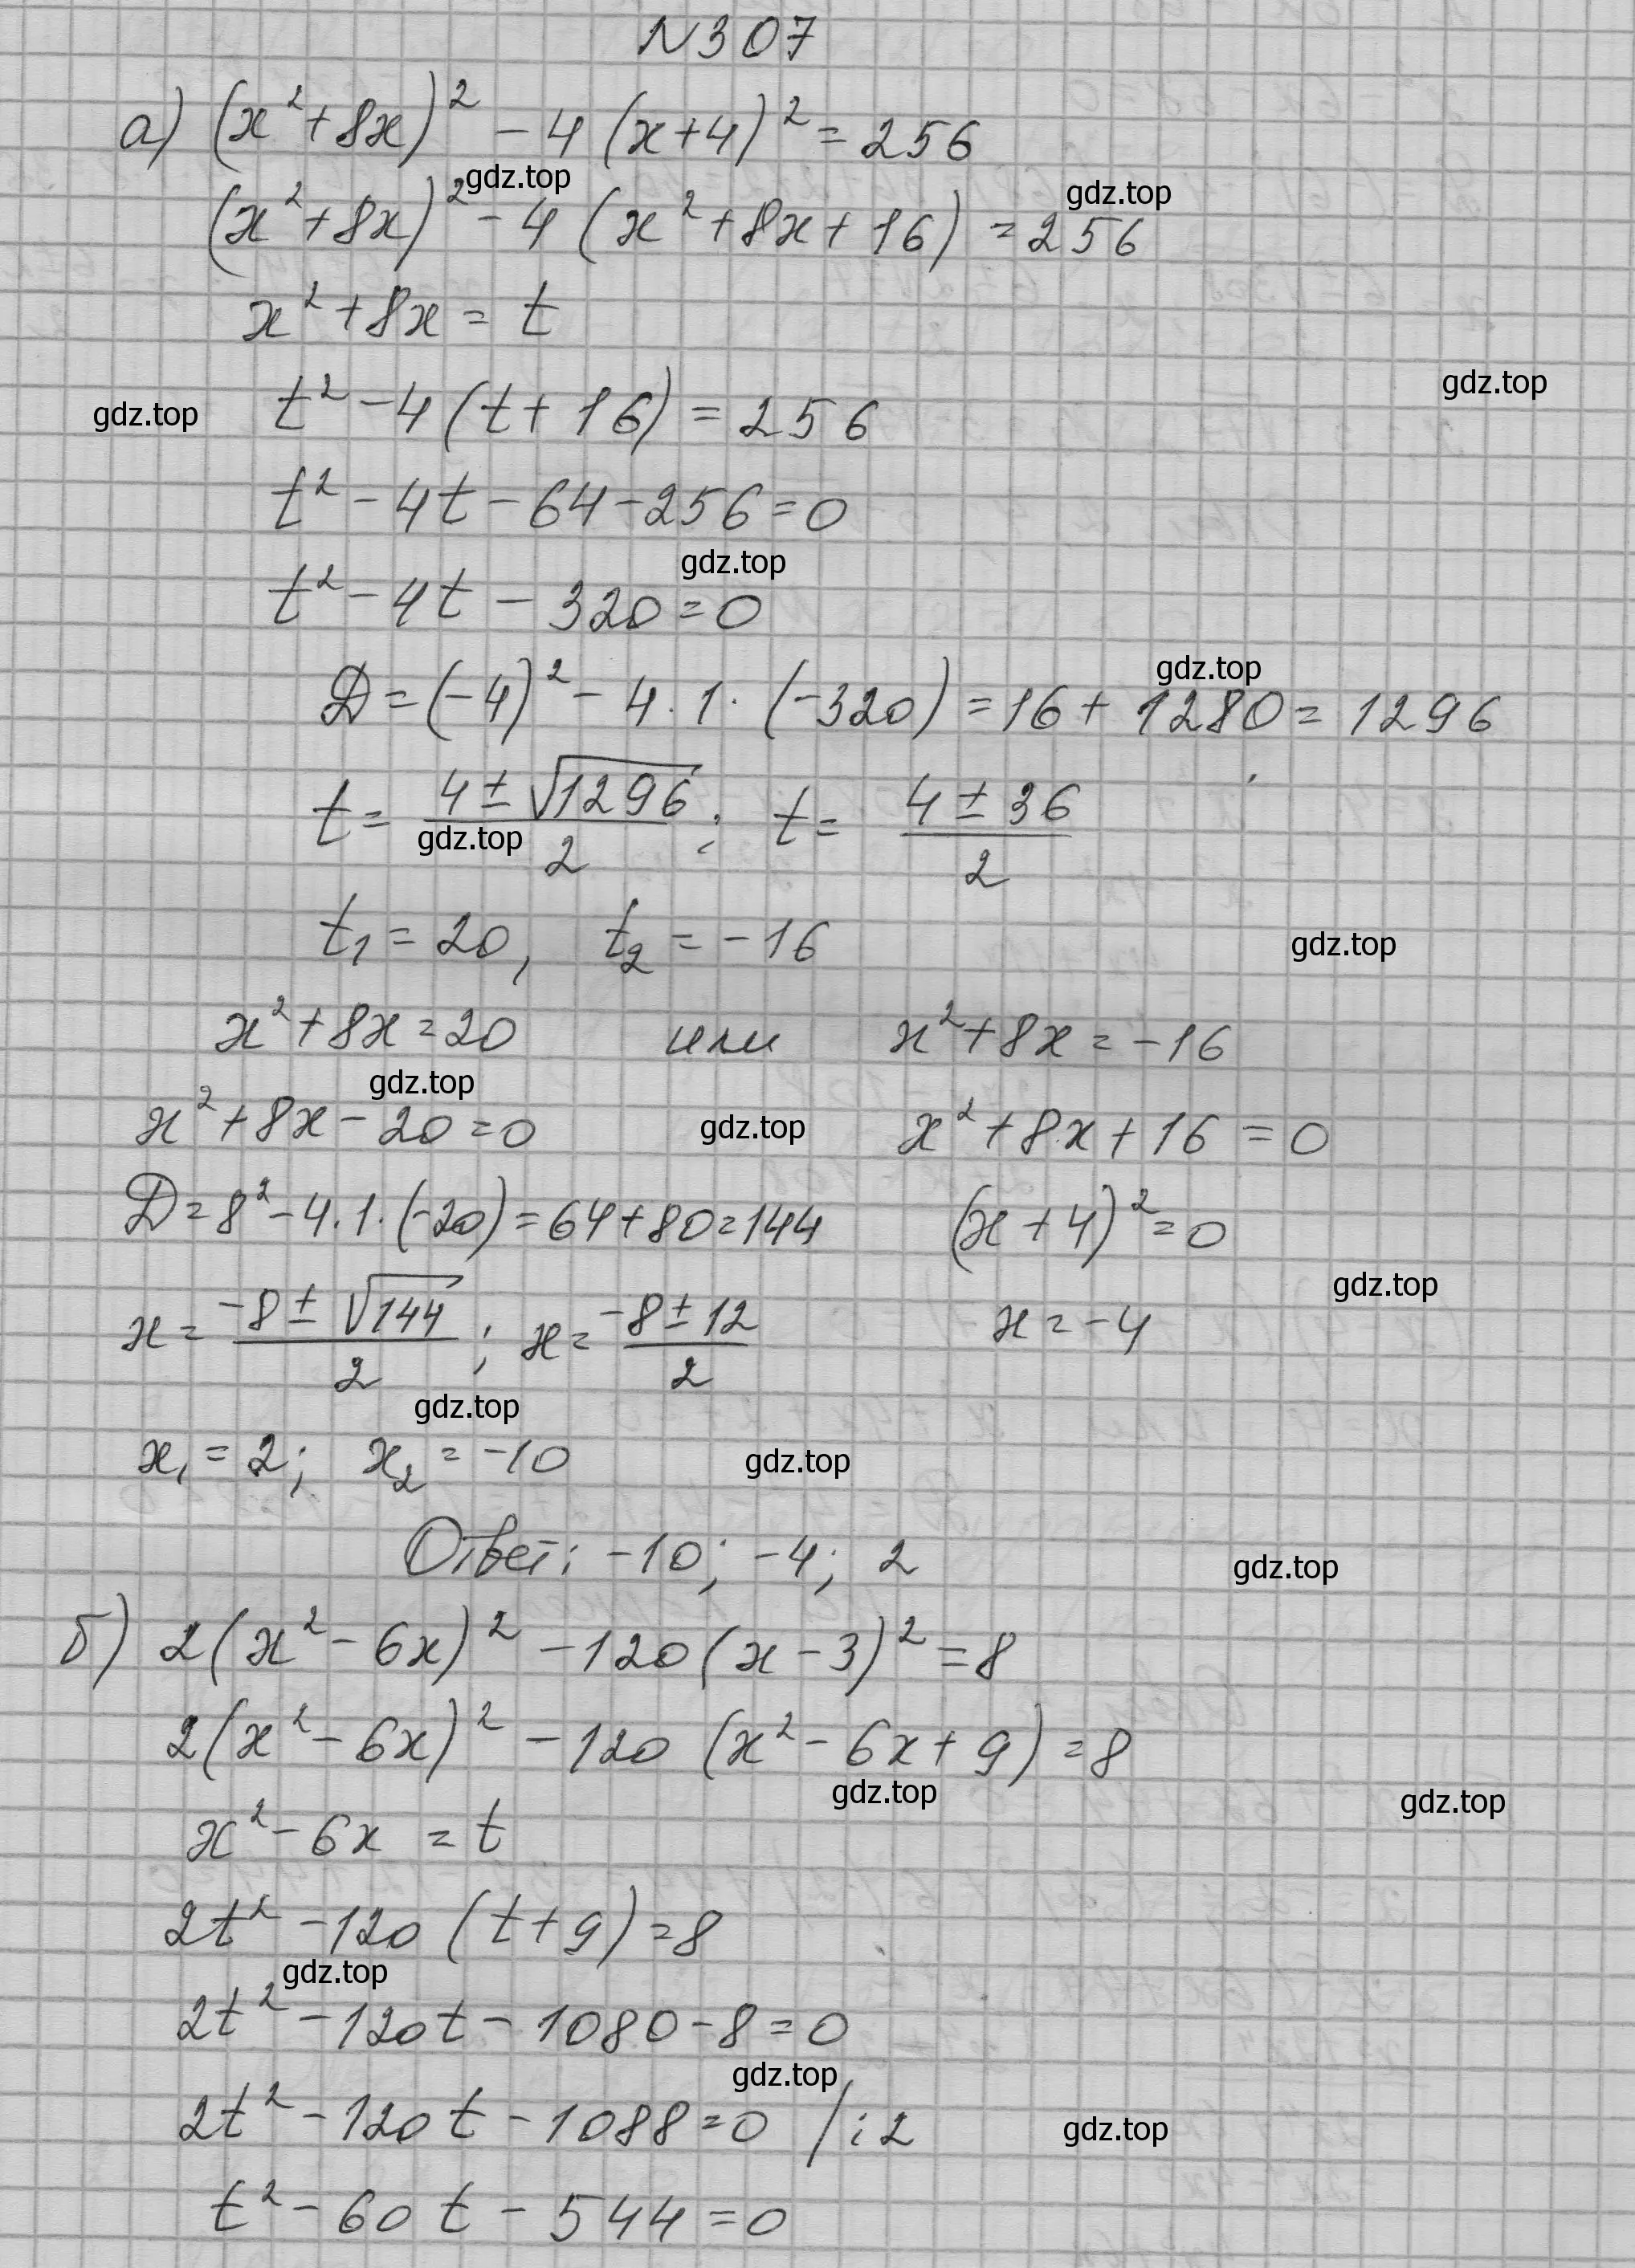 N307
а) (x²+8x)² - 4(x+4)² = 256
gdz.top
(x²+8x)² - 4(x²+8x+16) = 256
gdz.top
x²+8x = t
gdz.top
gdz.top
t² - 4(t+16) = 256
t² - 4t - 64 - 256 = 0
gdz.top
t² - 4t - 320 = 0
gdz.top
D = (-4)² - 4·1·(-320) = 16 + 1280 = 1296
t = (4 ± √1296)/2 ; t = (4 ± 36)/2
gdz.top
t₁ = 20, t₂ = -16
gdz.top
x²+8x = 20 или x²+8x = -16
gdz.top
x²+8x - 20 = 0 gdz.top x²+8x+16 = 0
D = 8² - 4·1·(-20) = 64+80 = 144 (x+4)² = 0
gdz.top
x = (-8 ± √144)/2 ; x = (-8 ± 12)/2 x = -4
gdz.top
x₁ = 2; x₂ = -10 gdz.top
Ответ: -10; -4; 2 gdz.top
б) 2(x² - 6x)² - 120(x-3)² = 8
2(x² - 6x)² - 120(x² - 6x + 9) = 8
gdz.top gdz.top
x² - 6x = t
2t² - 120(t+9) = 8
gdz.top
2t² - 120t - 1080 - 8 = 0
gdz.top
2t² - 120t - 1088 = 0 /:2 gdz.top
t² - 60t - 544 = 0